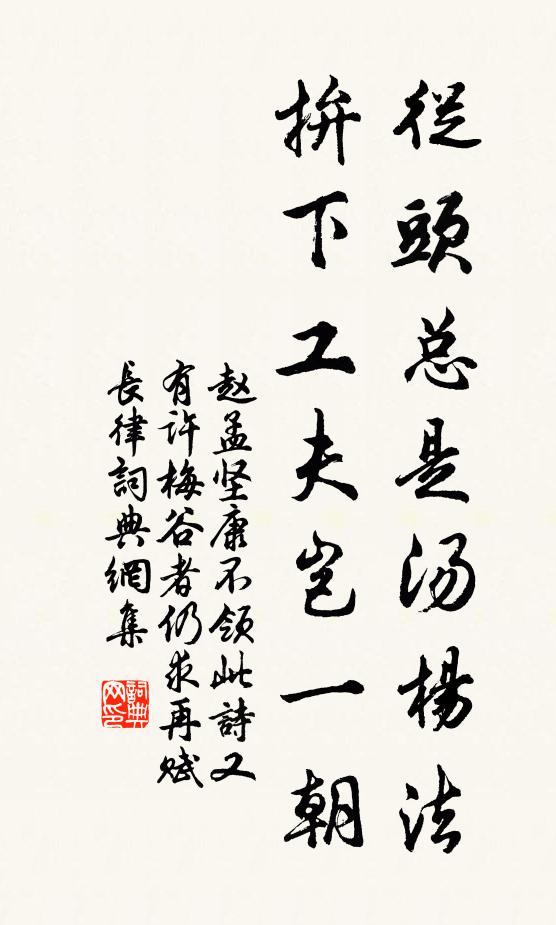 從頭总是汤楊法
拚下工夫岂一朝
赵孟坚康不领此詩又
有许梅谷者仍求再赋
長律詞典網集
詞典网印